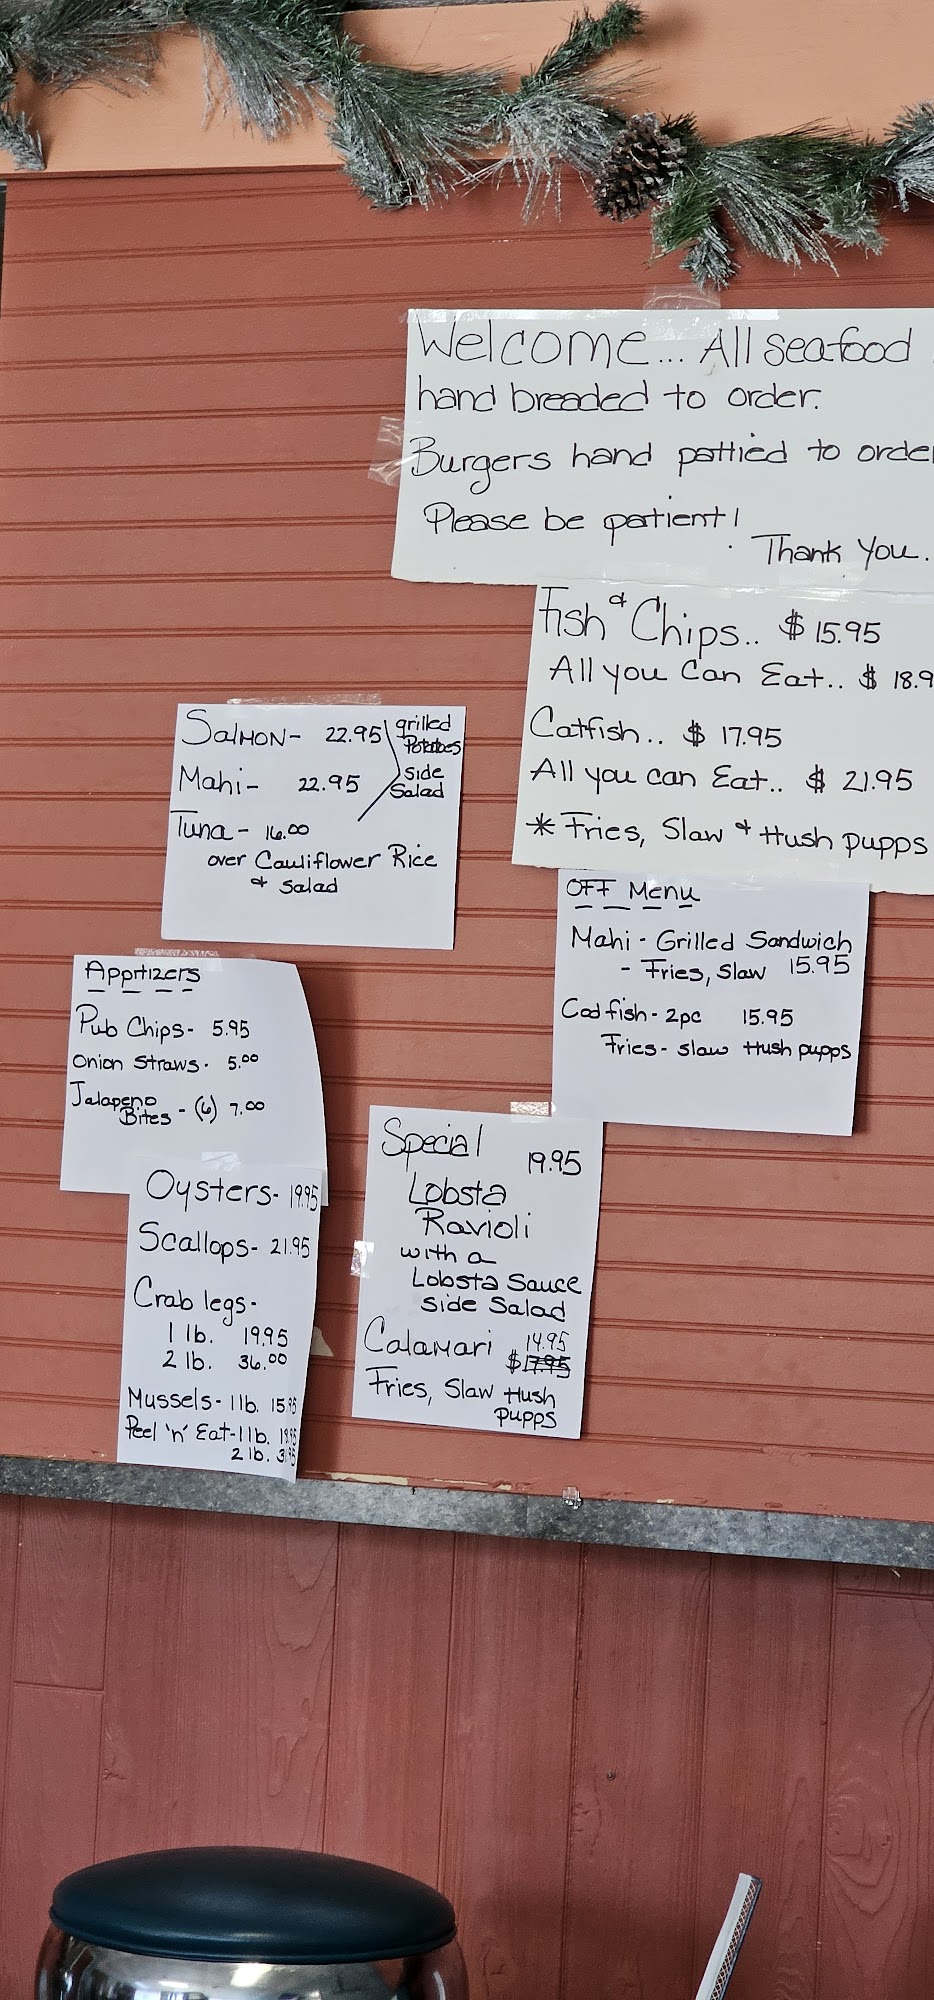 Welcome... All seafood
hand breaded to order.
Burgers hand pattied to order
Please be patient!
Thank You.
Fish & Chips.. $15.95
All you Can Eat.. $ 18.9
Catfish.. $ 17.95
All you can Eat.. $ 21.95
* Fries, Slaw & Hush pupps
Salmon- 22.95 grilled Potatoes
Mahi- 22.95 Side Salad
Tuna - 16.00
over Cauliflower Rice
& Salad
OFF Menu
Mahi - Grilled Sandwich
- Fries, Slaw 15.95
Cod fish - 2pc 15.95
Fries - slaw Hush pupps
Apprtizers
Pub Chips- 5.95
Onion Straws - 5.00
Jalapeno
Bites - (6) 7.00
Oysters- 19.95
Scallops- 21.95
Crab legs-
1 lb. 19.95
2 lb. 36.00
Mussels- 1 lb. 15.95
Peel 'n' Eat-1 lb.
2 lb.
Special
19.95
Lobsta
Ravioli
with a
Lobsta Sauce
Side Salad
Calamari 14.95
$17.95
Fries, Slaw Hush
pupps